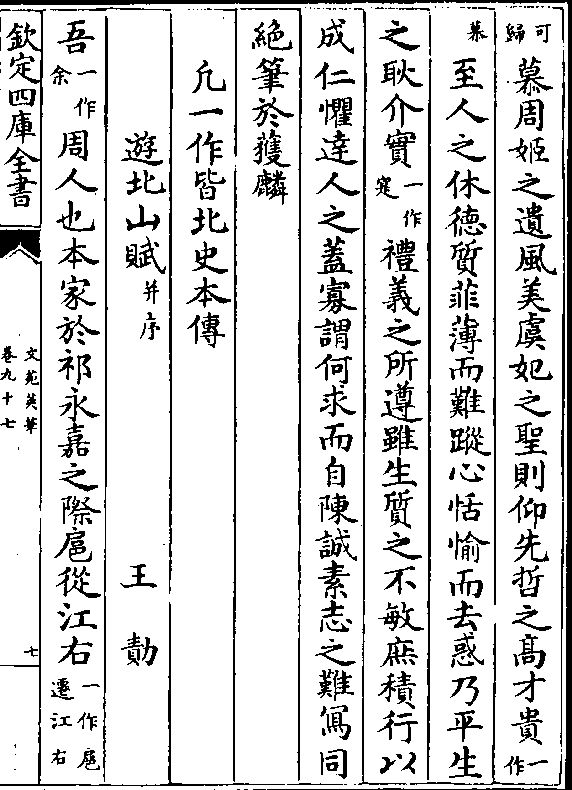 可歸慕周姬之遺風美虞妃之聖則仰先哲之髙才貴一作
慕至人之休德質菲薄而難蹤心恬愉而去惑乃平生
之耿介實一作寔禮義之所遵雖生質之不敏庶積行以
成仁懼達人之蓋寡謂何求而自陳誠素志之難寫同
絶筆於獲麟
凡一作皆北史本傳
遊北山賦并序 王勣
吾一作余周人也本家於祁永嘉之際扈從江右一作扈遷江右
欽定四庫全書
文苑英華
卷九十七
七